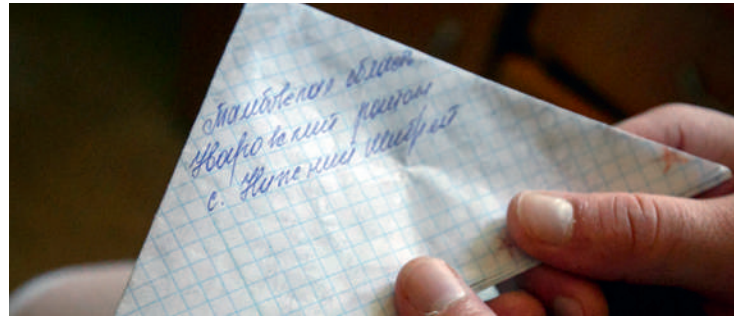 Тамбовская область
Уваровский район
с. Нижний шибряй